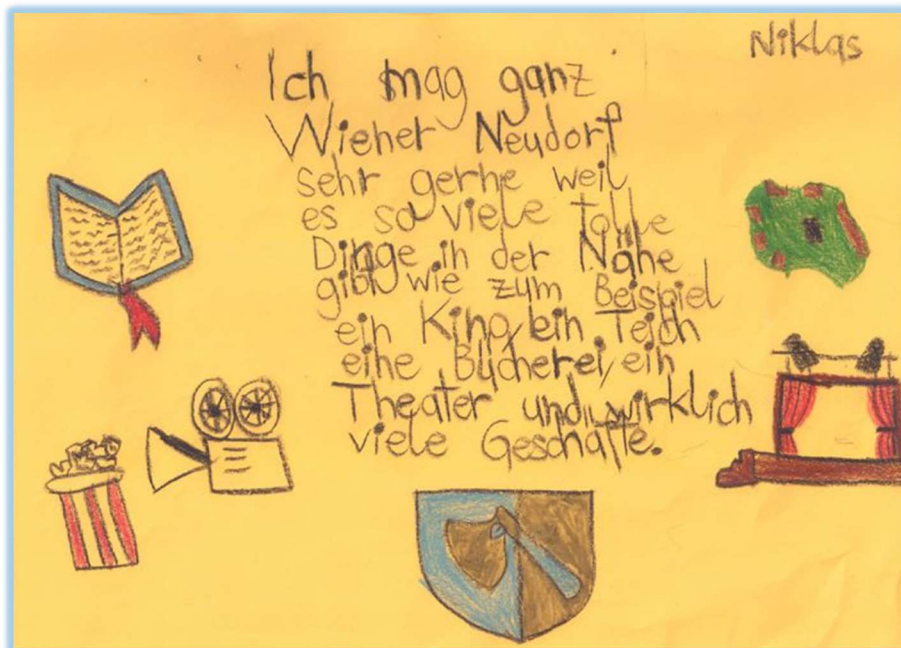 Niklas
Ich mag ganz
Wiener Neudorf
sehr gerne weil
es so viele tolle
Dinge in der Nähe
gibt wie zum Beispiel
ein Kino, ein Teich
eine Bücherei, ein
Theater und wirklich
viele Geschäfte.